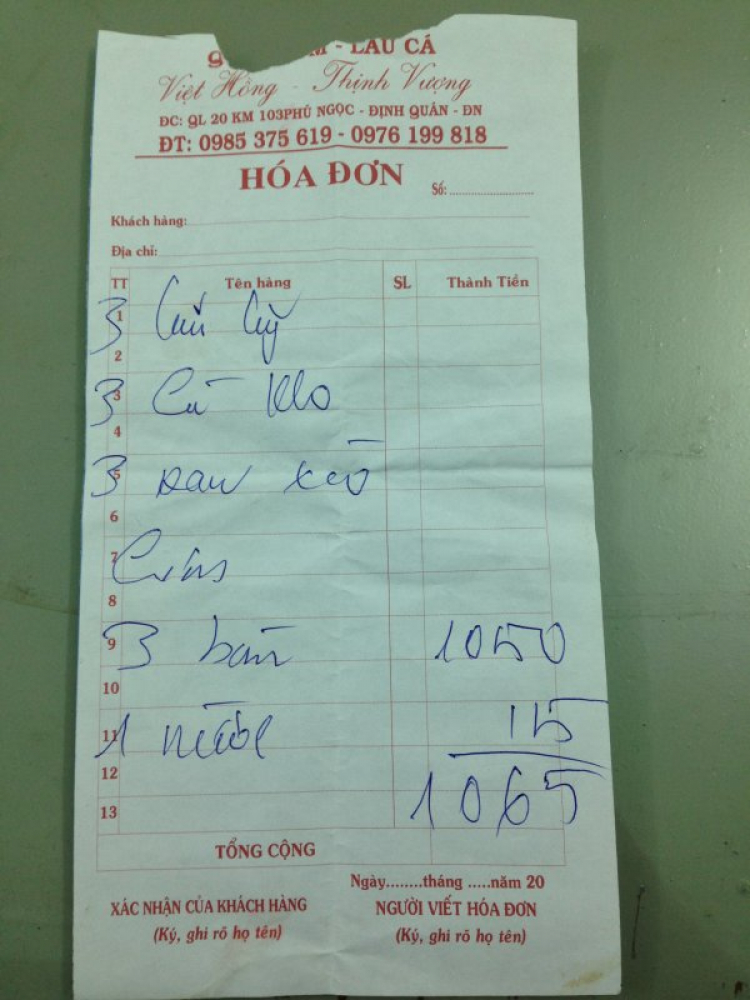 - LẨU CÁ
Việt Hồng - Thịnh Vượng
ĐC: QL 20 KM 103PHÚ NGỌC - ĐỊNH QUÁN - ĐN
ĐT: 0985 375 619 - 0976 199 818
HÓA ĐƠN
Số:
Khách hàng:
Địa chỉ:
TT Tên hàng SL Thành Tiền
1 3
2
3 3 Cá kho
4
5 3 xào
6
7 Cơm
8
9 3 bàn 1050
10
11 1 nước 15
12
13 1065
TỔNG CỘNG
Ngày........tháng .....năm 20
XÁC NHẬN CỦA KHÁCH HÀNG NGƯỜI VIẾT HÓA ĐƠN
(Ký, ghi rõ họ tên) (Ký, ghi rõ họ tên)